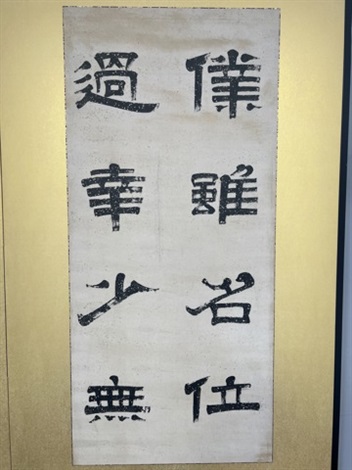 僕雖名位
過幸少無